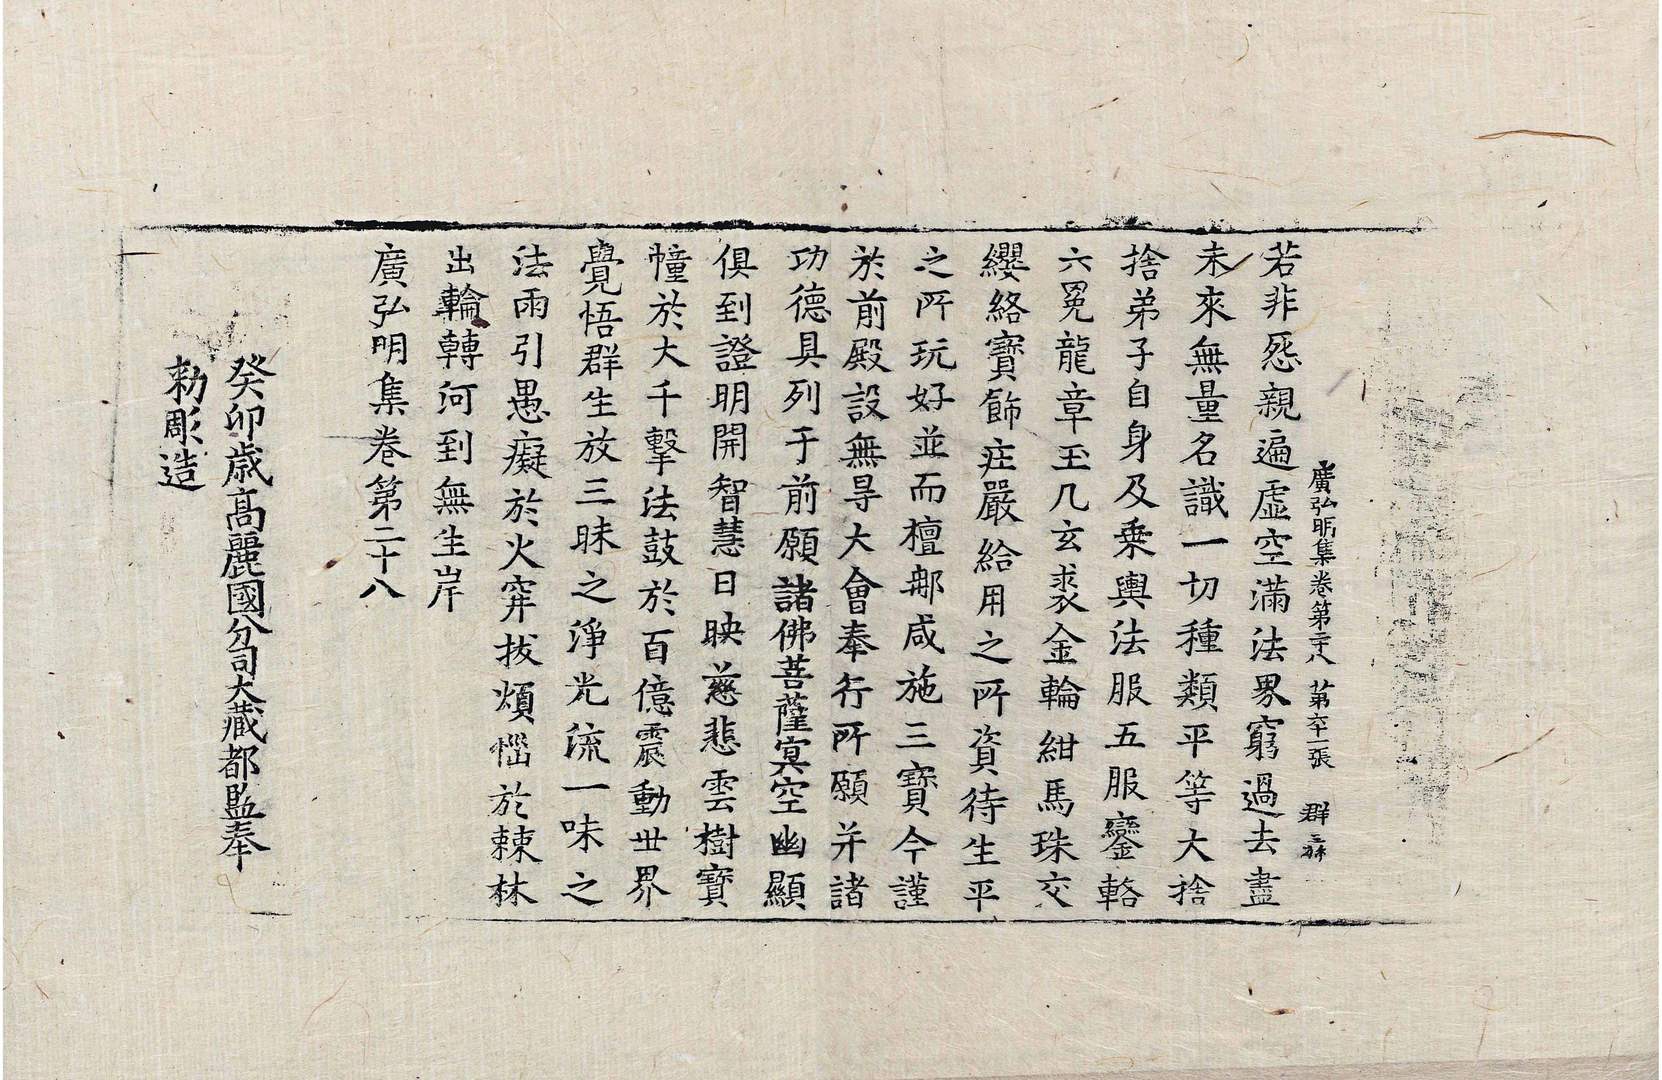 廣弘明集卷第二十八　第六十一張　群
若非怨親遍虛空滿法界窮過去盡
未來無量名識一切種類平等大捨
捨弟子自身及乗輿法服五服鑾輅
六冕龍章玉几玄裘金輪紺馬珠交
纓絡寶飾莊嚴給用之所資待生平
之所玩好並而檀郍咸施三寶今謹
於前殿設無㝵大會奉行所願并諸
功德具列于前願諸佛菩薩冥空幽顯
俱到證明開智慧日映慈悲雲樹寶
幢於大千擊法鼓於百億震動世界
覺悟群生放三昧之淨光流一味之
法雨引愚癡於火穽拔煩惱於棘林
出輪轉河到無生岸
廣弘明集卷第二十八
癸卯歳高麗國分司大藏都監奉
勑彫造